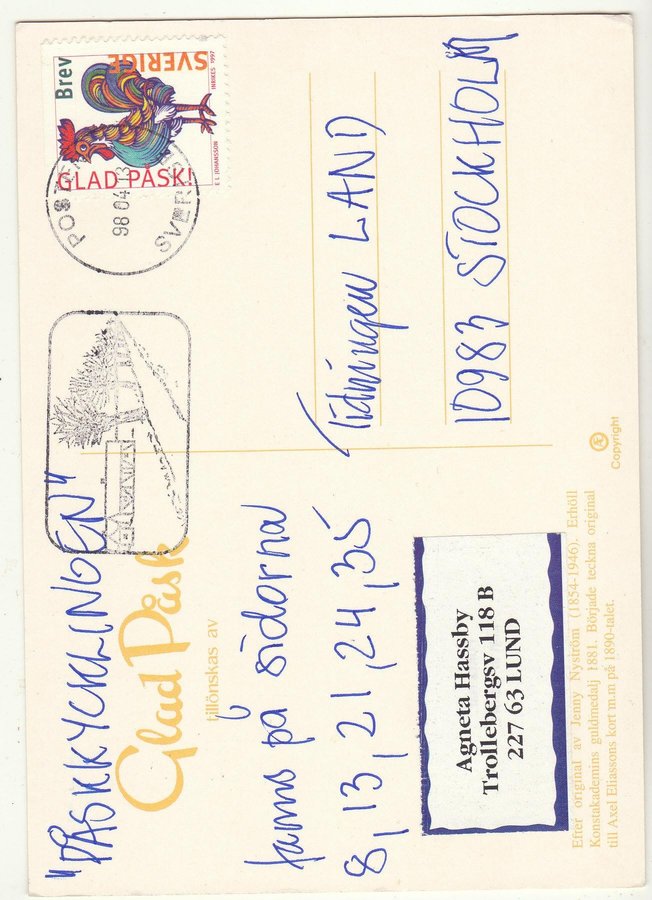 "PÅSKKYCKLINGEN"
Glad Påsk
tillönskas av
fanns på sidorna
8, 13, 21, 24, 35
Agneta Hassby
Trollebergsv 118 B
227 63 LUND
Efter original av Jenny Nyström (1854-1946). Erhöll
Konstakademins guldmedalj 1881. Började teckna original
till Axel Eliassons kort m.m på 1890-talet.
Brev
SVERIGE
INRIKES 1997
E L JOHANSSON
GLAD PÅSK!
POSTEN
98 04 13
SVERIGE
Tidningen LAND
10983 STOCKHOLM
Æ
Copyright